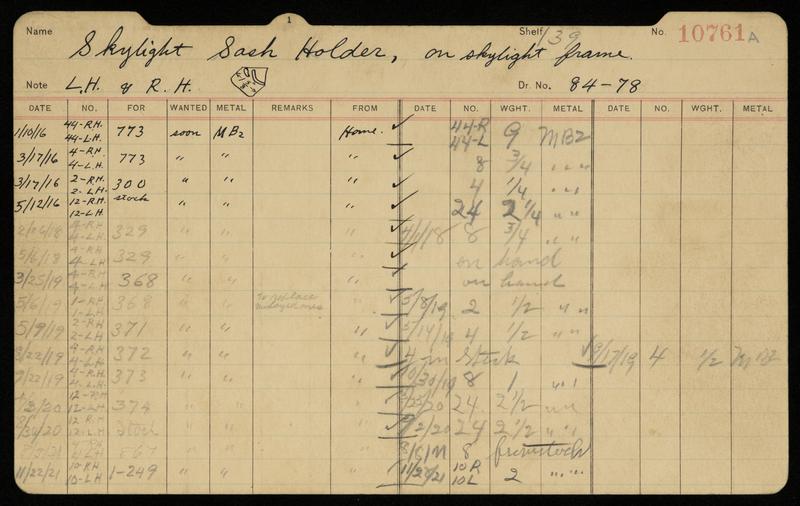 1
Name Skylight Sash Holder, on skylight frame. Shelf 139 No. 10761A
Note L.H. & R.H. Dr. No. 84-78
DATE NO. FOR WANTED METAL REMARKS FROM DATE NO. WGHT. METAL DATE NO. WGHT. METAL
1/10/16 44-R.H. 44-L.H. 773 soon MB2 Home. ✓ 44-R 44-L 9 MB2
3/17/16 4-R.H. 4-L.H. 773 " " " ✓ 8 3/4 " "
3/17/16 2-R.H. 2-L.H. 300 " " " ✓ 4 1/4 " "
5/12/16 12-R.H. 12-L.H. stock " " " ✓ 24 2 1/4 " "
4-R.H. 4-L.H. 329 " " " ✓ 4/1/18 8 3/4 " "
5/6/18 4-R.H. 4-L.H. 329 " " " ✓ on hand
3/25/19 4-R.H. 4-L.H. 368 " " " on hand
5/6/19 1-R.H. 1-L.H. 368 " " To replace " ✓ 5/8/19 2 1/2 " "
5/9/19 2-R.H. 2-L.H. 371 " " " ✓ 5/14/19 4 1/2 " "
8/22/19 4-R.H. 4-L.H. 372 " " " ✓ 4 in Stock ✓ 9/17/19 4 1/2 MB2
9/22/19 4-R.H. 4-L.H. 373 " " " ✓ 10/30/19 8 1 " "
12-R.H. 12-L.H. 374 " " " ✓ 24 2 1/2 " "
12-R.H. 12-L.H. Stock " " " ✓ 9/2/20 24 2 1/2 " "
4-R.H. 4-L.H. " " " 8 from stock
11/22/21 10-R.H. 10-L.H. 1-249 " " " ✓ 11/29/21 10R 10L 2 " "